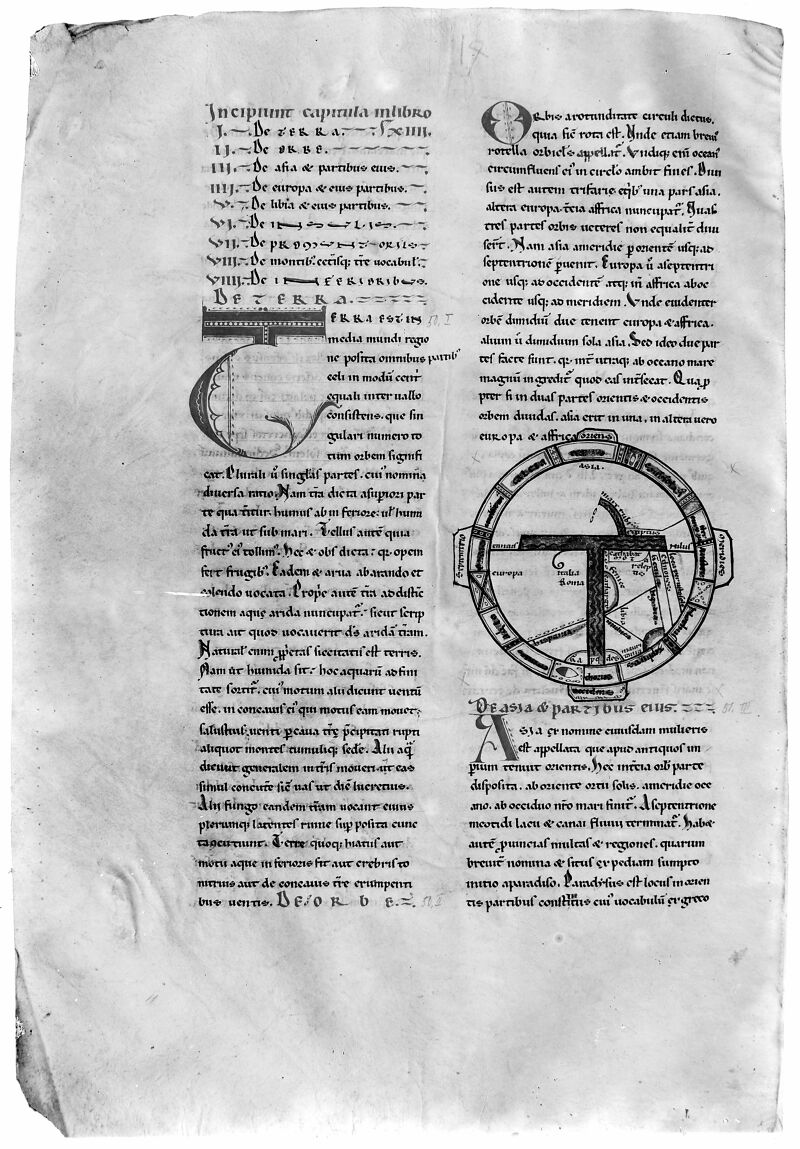 Incipiunt capitula in libro
I. De TERRA. XIIII.
II. De ORBE.
III. De asia & partibus eius.
IIII. De europa & eius partibus.
V. De libia & eius partibus.
VI. De INSULIS.
VII. De PROMONTORIIS
VIII. De montib; cetisq; tre vocabul.
VIIII. De INFERIORIBUS.
DE TERRA.
TERRA EST IN
media mundi regio
ne posita omnibus partib;
celi in modū centri
equali inter uallo
consistens. que sin
gulari numero to
tum orbem signifi
cat. Plurali ū singlas partes. cui' nomina
diuersa ratio. Nam tra dicta a supiori par
te qua teritur. humus ab inferiore ul hum
da tra ut sub mari. Tellus autē quia
fruct' ei' tollim'. Hec & obs dicta. qr opem
fert frugib'. Eadem & arua ab arando et
colendo vocata. Proprie autē tra ad distic
tionem aquę arida nuncupat. sicut scrip
tura ait quod vocauerit ds aridā tram.
Natural' enim ppetas siccitatis est terris.
Nam ut humida sit. hoc aquarū ad fini
tate sortit. cui' motum alii dicunt uentū
esse. in concauis ei' qui motus eam mouet.
salustius. uenti p caua tre pcipitati rupti
aliquot montes tumuliq; sede. Alii aqā
dicunt generalem in tris moueri. ut eas
simul concute sic uas ut dic lucretius.
Alii fungo eandem tram vocant cuius
plerumq; latentes ruine sup posita cunc
ta concutiunt. Terre quoq; hiatus aut
motu aque in ferioris fit aut crebris to
nitruis aut de concauis tre erumpenti
bus uentis. DE ORBE.
ORbis a rotunditate circuli dictus.
quia sic rota est. Unde etiam breuis
rotella orbicl's appellat. Undiq; eni ocean'
circumfluens ei' in circlo ambit fines. Diui
sus est autem trifarie. eqb' una pars asia.
altera europa. tcia affrica nuncupat. Quas
tres partes orbis ueteres non equalit diui
sert. Nam asia a meridie p oriente usq; ad
septentrione puenit. Europa ū a septentri
one usq; ad occidente. atq; in affrica ab oc
cidente usq; ad meridiem. Unde euidenter
orbē dimidiū due tenent europa & affrica.
alium ū dimidium sola asia. Sed ideo due par
tes facte sunt. qr int utraq; ab oceano mare
magnū in gredit quod eas intsecat. Qua p
pter si in duas partes orientis & occidentis
orbem diuidas. asia erit in una. in altera uero
europa & affrica
oriens
asia.
septentrio
meridies
europa
italia
Roma
nilus
libia
hispania
occidens
DE ASIA & PARTIBUS EIUS.
ASIA ex nomine cuiusdam mulieris
est appellata que apud antiquos im
perium tenuit orientis. Hec in tcia orb' parte
disposita. ab oriente ortu solis. a meridie oce
ano. ab occiduo nro mari finit. A septentrione
meotidi lacu & tanai fluuio terminat. Habæ
autē puincias multas & regiones. quarum
breuit nomina & situs expediam sumpto
initio a paradiso. Paradysus est locus in orien
tis partibus constitutus cui' uocabulū ex greco